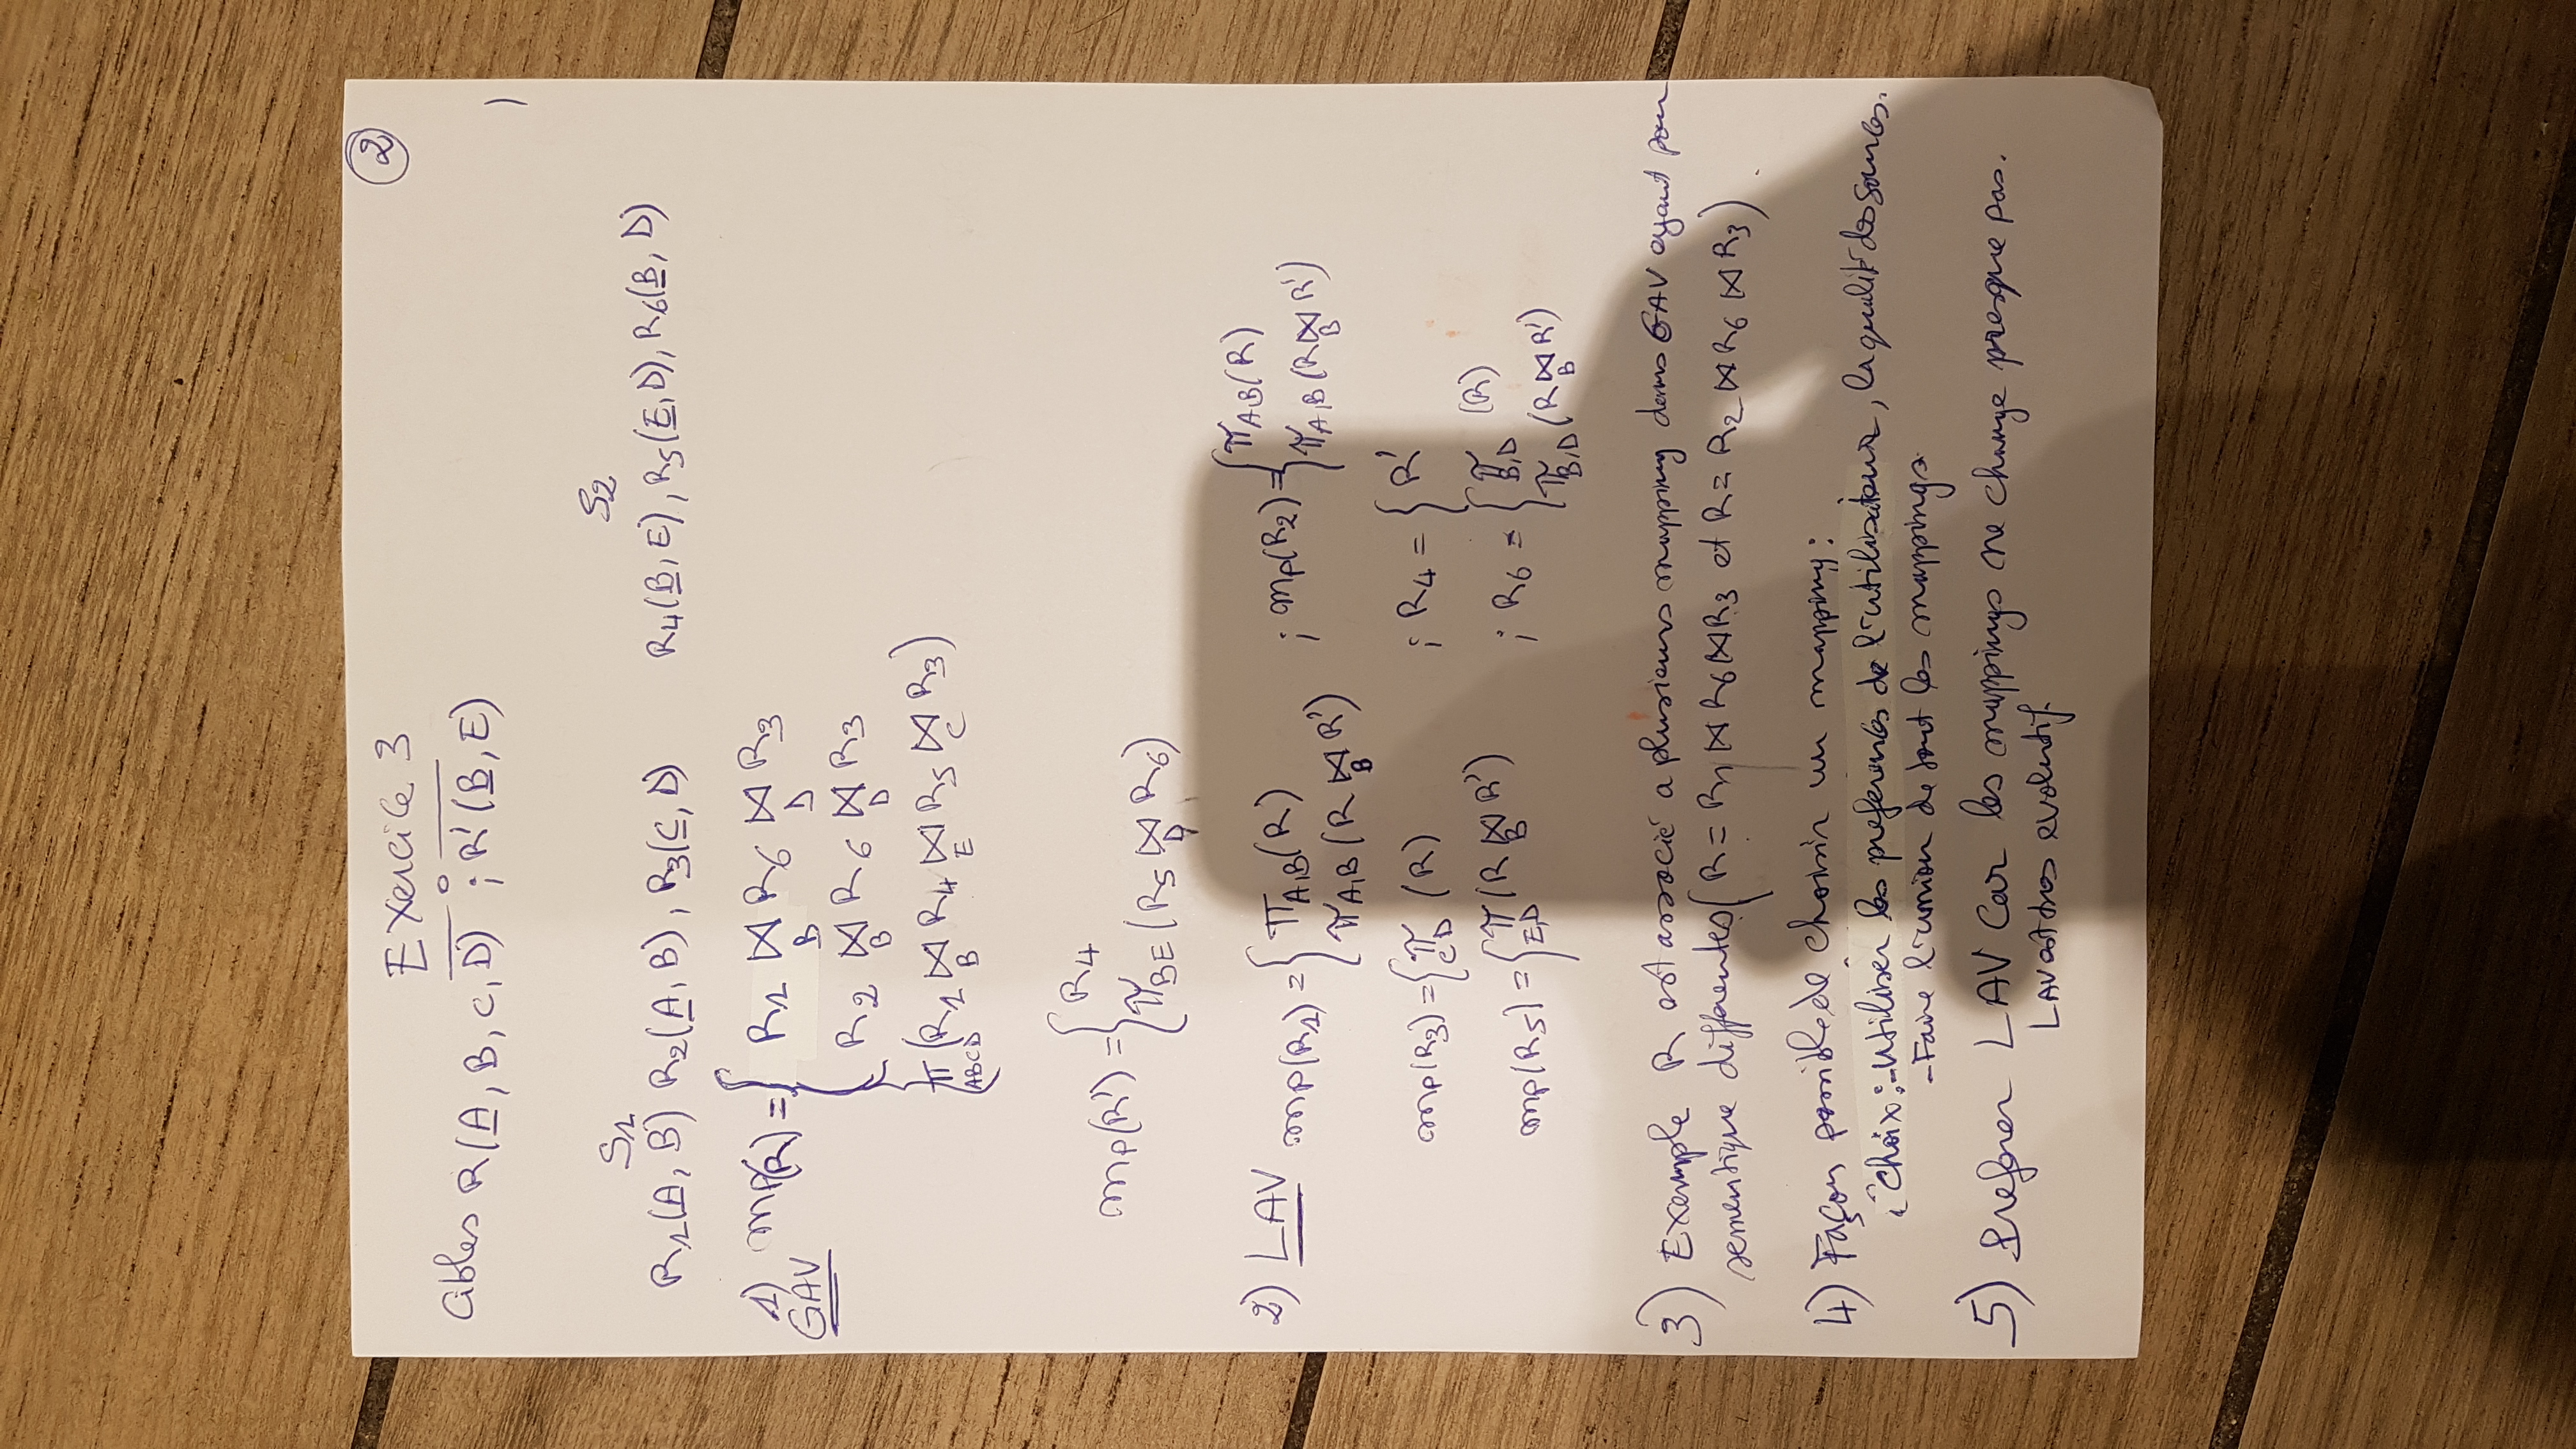 ②
Exercice 3
Cibles R(A, B, C, D) ; R'(B, E)
S1 S2
R1(A, B) R2(A, B), R3(C, D) R4(B, E), R5(E, D), R6(B, D)
1) mp(R) = { R1 ⋈B R6 ⋈D R3
GAV
R2 ⋈B R6 ⋈D R3
πABCD (R1 ⋈B R4 ⋈E R5 ⋈C R3)
mp(R') = { R4
πBE (R5 ⋈D R6)
2) LAV mp(R1) = { πA,B(R) ; mp(R2) = { πA,B(R)
πA,B (R ⋈B R') πA,B (R ⋈B R')
mp(R3) = { πCD (R) ; R4 = { R'
mp(R5) = { πE,D (R ⋈B R') ; R6 = { πB,D (R)
πB,D (R ⋈B R')
3) Exemple R est associé a plusieurs mapping dans GAV ayant pour
sementique differentes (R = R1 ⋈ R6 ⋈ R3 et R = R2 ⋈ R6 ⋈ R3).
4) Façon possible de choisir un mapping :
choix : - Utiliser les preferences de l'utilisateur, la qualité des sources.
- Faire l'union de tout les mappings
5) Preferer LAV Car les mappings ne change presque pas.
LAV est tres evolutif.